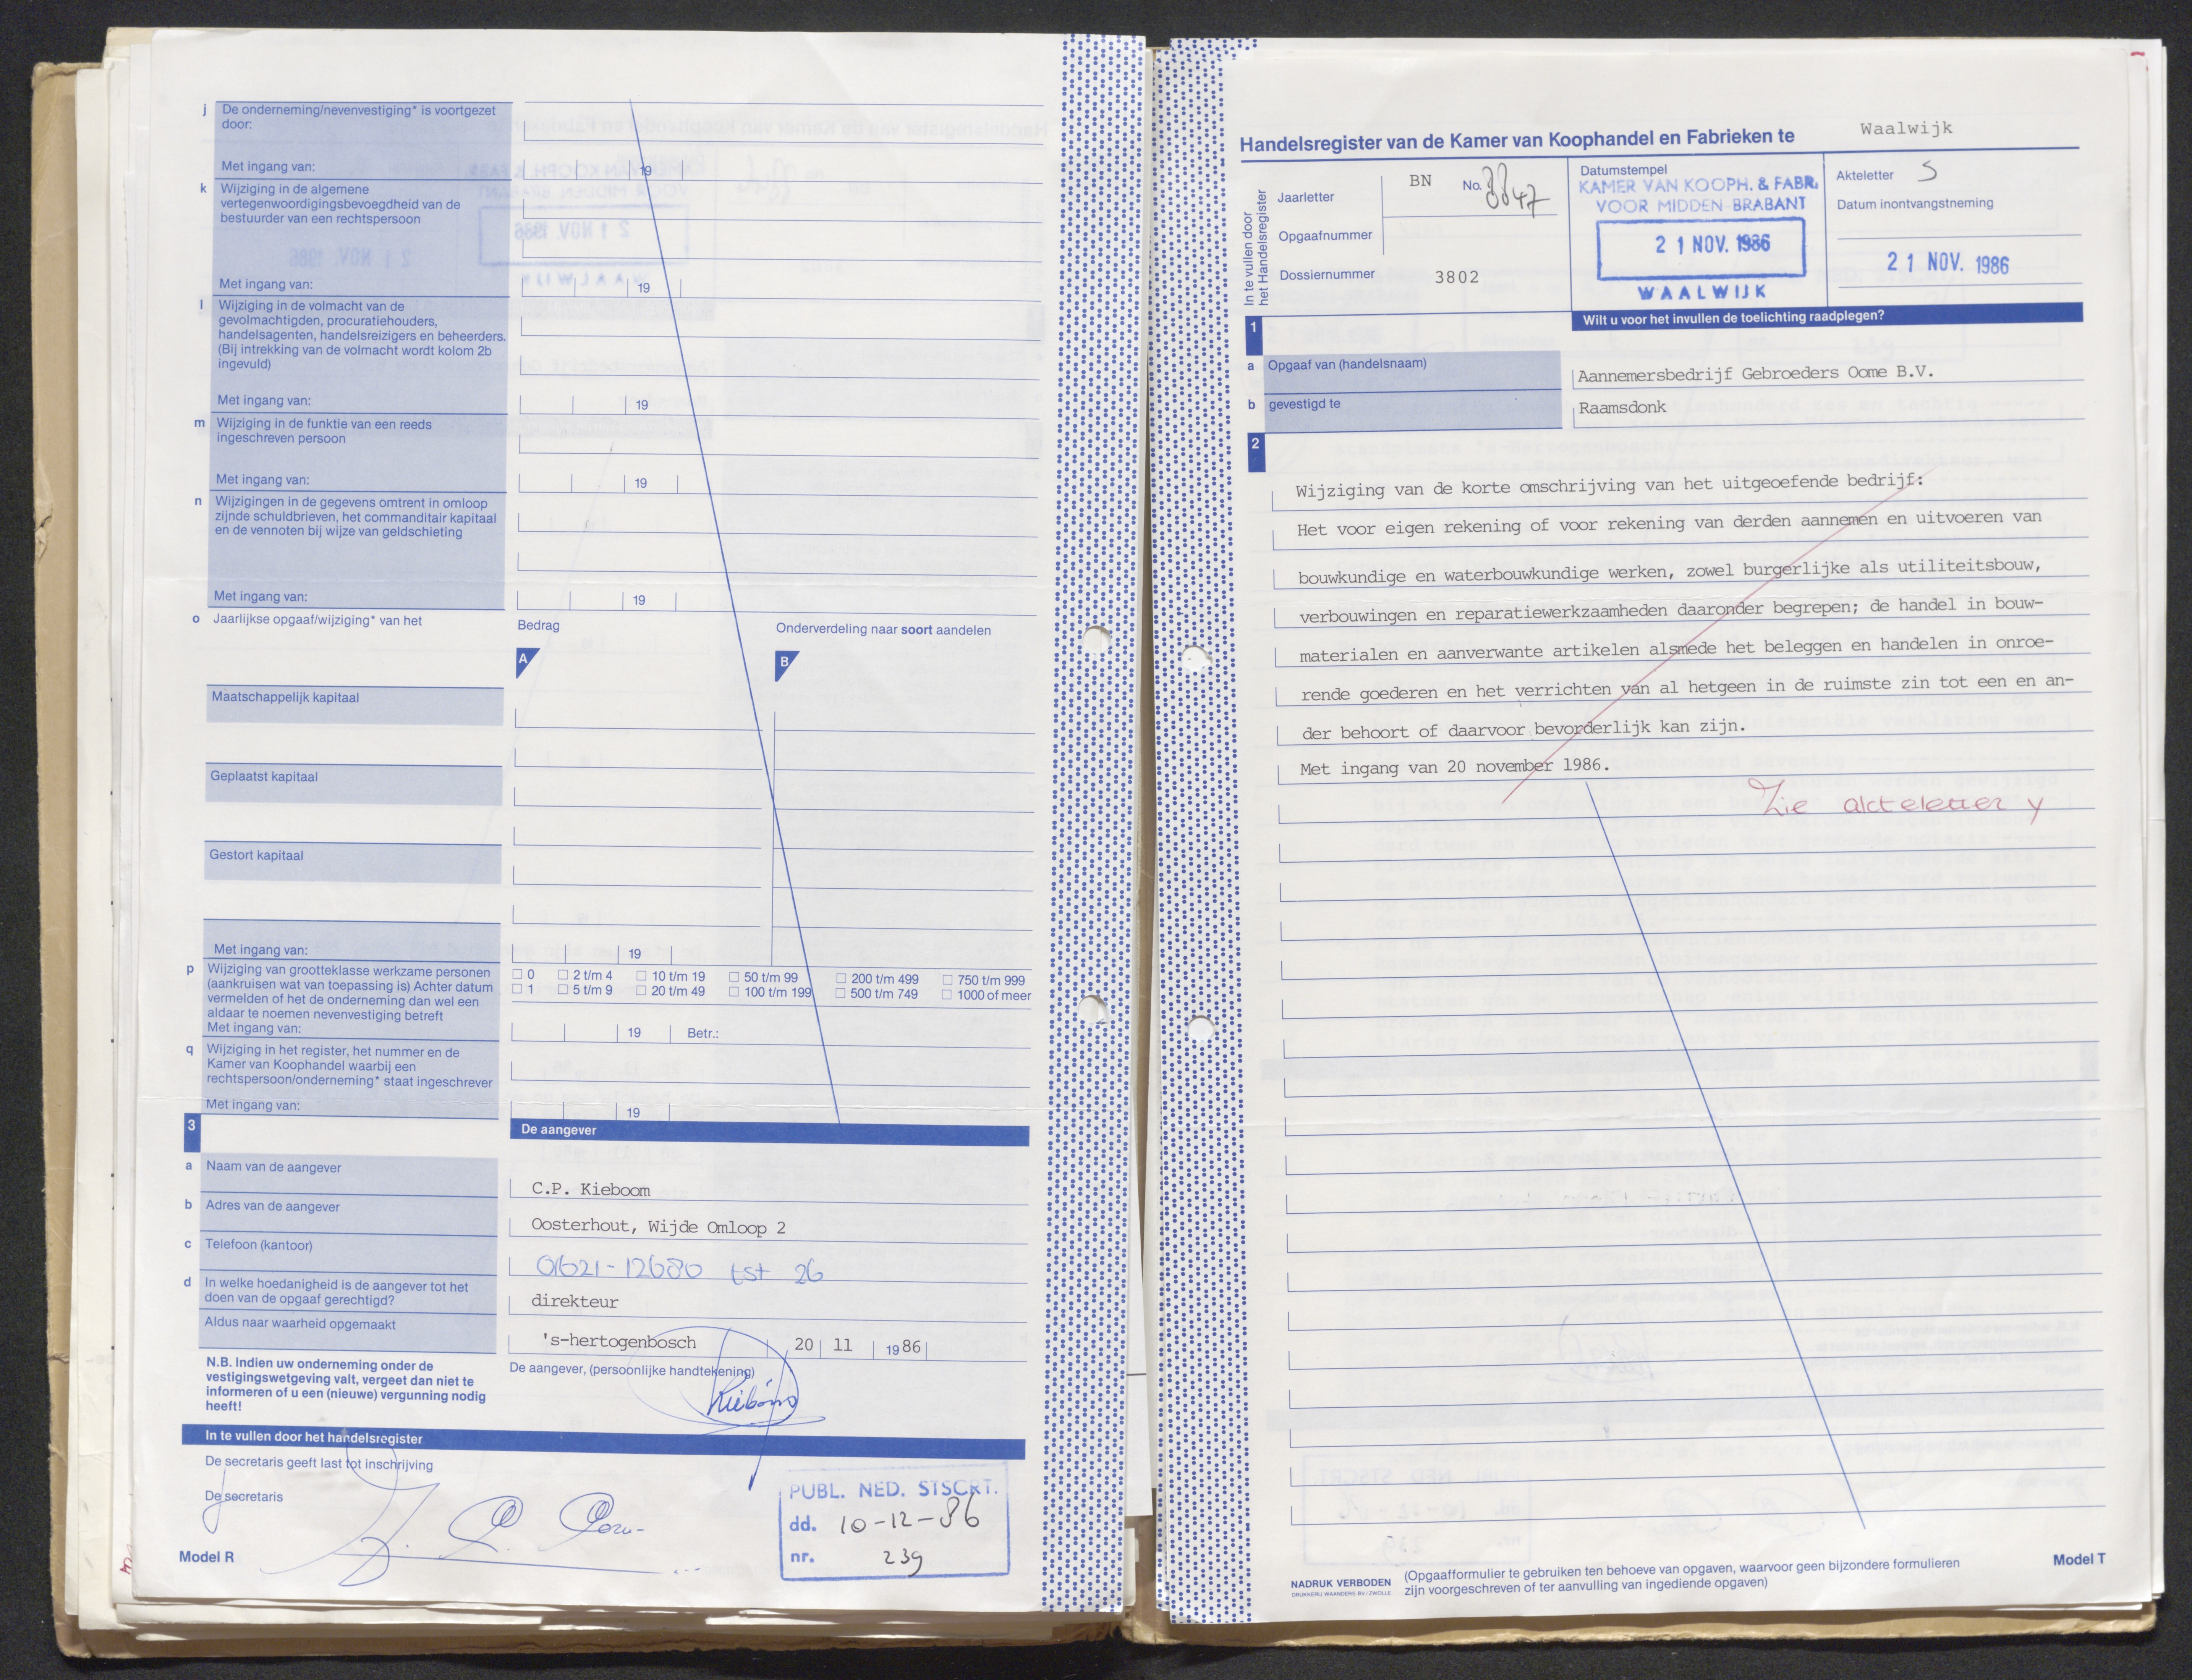 j De onderneming/nevenvestiging* is voortgezet
door:
Met ingang van: 19
k Wijziging in de algemene
vertegenwoordigingsbevoegdheid van de
bestuurder van een rechtspersoon
Met ingang van: 19
l Wijziging in de volmacht van de
gevolmachtigden, procuratiehouders,
handelsagenten, handelsreizigers en beheerders.
(Bij intrekking van de volmacht wordt kolom 2b
ingevuld)
Met ingang van: 19
m Wijziging in de funktie van een reeds
ingeschreven persoon
Met ingang van: 19
n Wijzigingen in de gegevens omtrent in omloop
zijnde schuldbrieven, het commanditair kapitaal
en de vennoten bij wijze van geldschieting
Met ingang van: 19
o Jaarlijkse opgaaf/wijziging* van het Bedrag Onderverdeling naar soort aandelen
A B
Maatschappelijk kapitaal
Geplaatst kapitaal
Gestort kapitaal
Met ingang van: 19
p Wijziging van grootteklasse werkzame personen
(aankruisen wat van toepassing is) Achter datum
vermelden of het de onderneming dan wel een
aldaar te noemen nevenvestiging betreft
0 2 t/m 4 10 t/m 19 50 t/m 99 200 t/m 499 750 t/m 999
1 5 t/m 9 20 t/m 49 100 t/m 199 500 t/m 749 1000 of meer
Met ingang van: 19 Betr.:
q Wijziging in het register, het nummer en de
Kamer van Koophandel waarbij een
rechtspersoon/onderneming* staat ingeschrever
Met ingang van: 19
3 De aangever
a Naam van de aangever C.P. Kieboom
b Adres van de aangever Oosterhout, Wijde Omloop 2
c Telefoon (kantoor) 01621-12680 tst 26
d In welke hoedanigheid is de aangever tot het
doen van de opgaaf gerechtigd? direkteur
Aldus naar waarheid opgemaakt 's-hertogenbosch 20 11 1986
N.B. Indien uw onderneming onder de
vestigingswetgeving valt, vergeet dan niet te
informeren of u een (nieuwe) vergunning nodig
heeft!
De aangever, (persoonlijke handtekening)
Kieboom
In te vullen door het handelsregister
De secretaris geeft last tot inschrijving
De secretaris
PUBL. NED. STSCRT.
dd. 10-12-86
nr. 239
Model R
Handelsregister van de Kamer van Koophandel en Fabrieken te Waalwijk
In te vullen door
het Handelsregister
Jaarletter BN No. 8847
Opgaafnummer
Dossiernummer 3802
Datumstempel
KAMER VAN KOOPH. & FABR.
VOOR MIDDEN-BRABANT
21 NOV. 1986
WAALWIJK
Akteletter S
Datum inontvangstneming
21 NOV. 1986
1 Wilt u voor het invullen de toelichting raadplegen?
a Opgaaf van (handelsnaam) Aannemersbedrijf Gebroeders Oome B.V.
b gevestigd te Raamsdonk
2
Wijziging van de korte omschrijving van het uitgeoefende bedrijf:
Het voor eigen rekening of voor rekening van derden aannemen en uitvoeren van
bouwkundige en waterbouwkundige werken, zowel burgerlijke als utiliteitsbouw,
verbouwingen en reparatiewerkzaamheden daaronder begrepen; de handel in bouw-
materialen en aanverwante artikelen alsmede het beleggen en handelen in onroe-
rende goederen en het verrichten van al hetgeen in de ruimste zin tot een en an-
der behoort of daarvoor bevorderlijk kan zijn.
Met ingang van 20 november 1986.
Zie akteletter y
NADRUK VERBODEN
DRUKKERIJ WAANDERS BV/ZWOLLE
(Opgaafformulier te gebruiken ten behoeve van opgaven, waarvoor geen bijzondere formulieren
zijn voorgeschreven of ter aanvulling van ingediende opgaven)
Model T